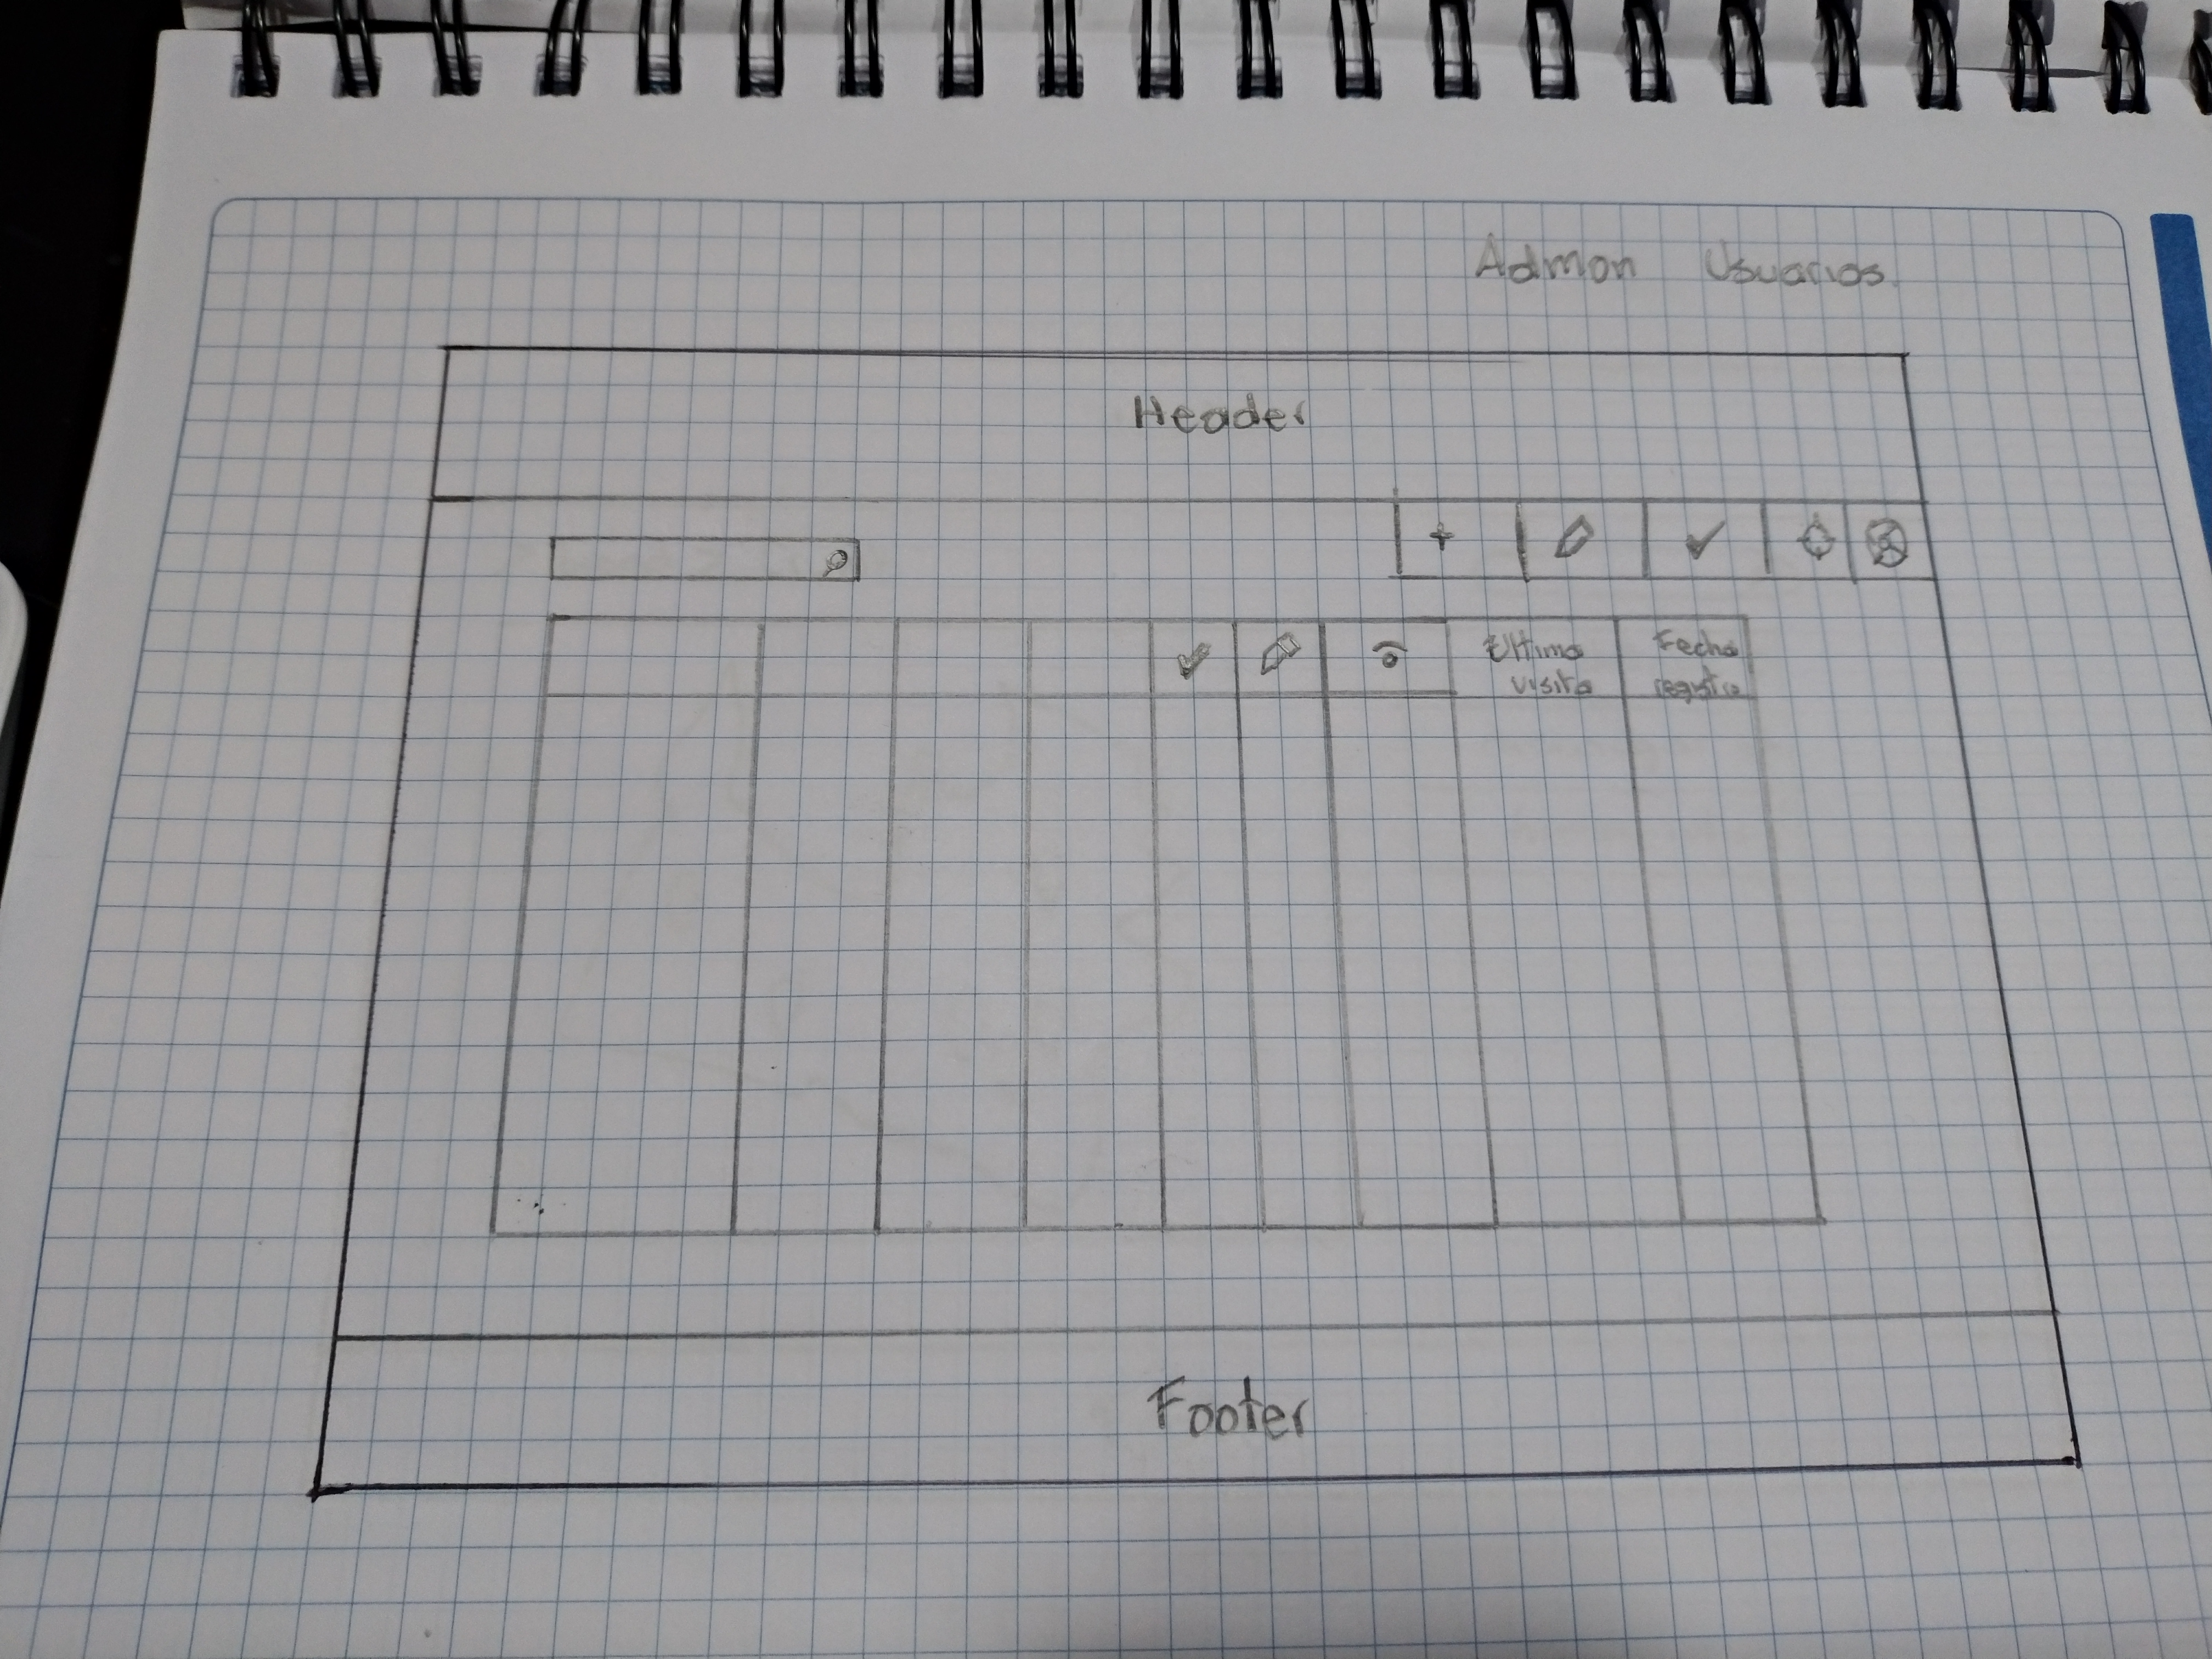 Admon Usuarios
Header
Ultima
visita
Fecha
registro
Footer